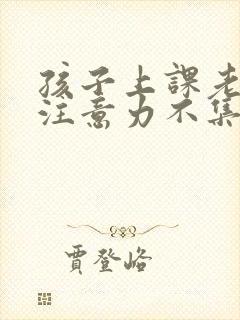 孩子上課老
注意力不集
賈登峪